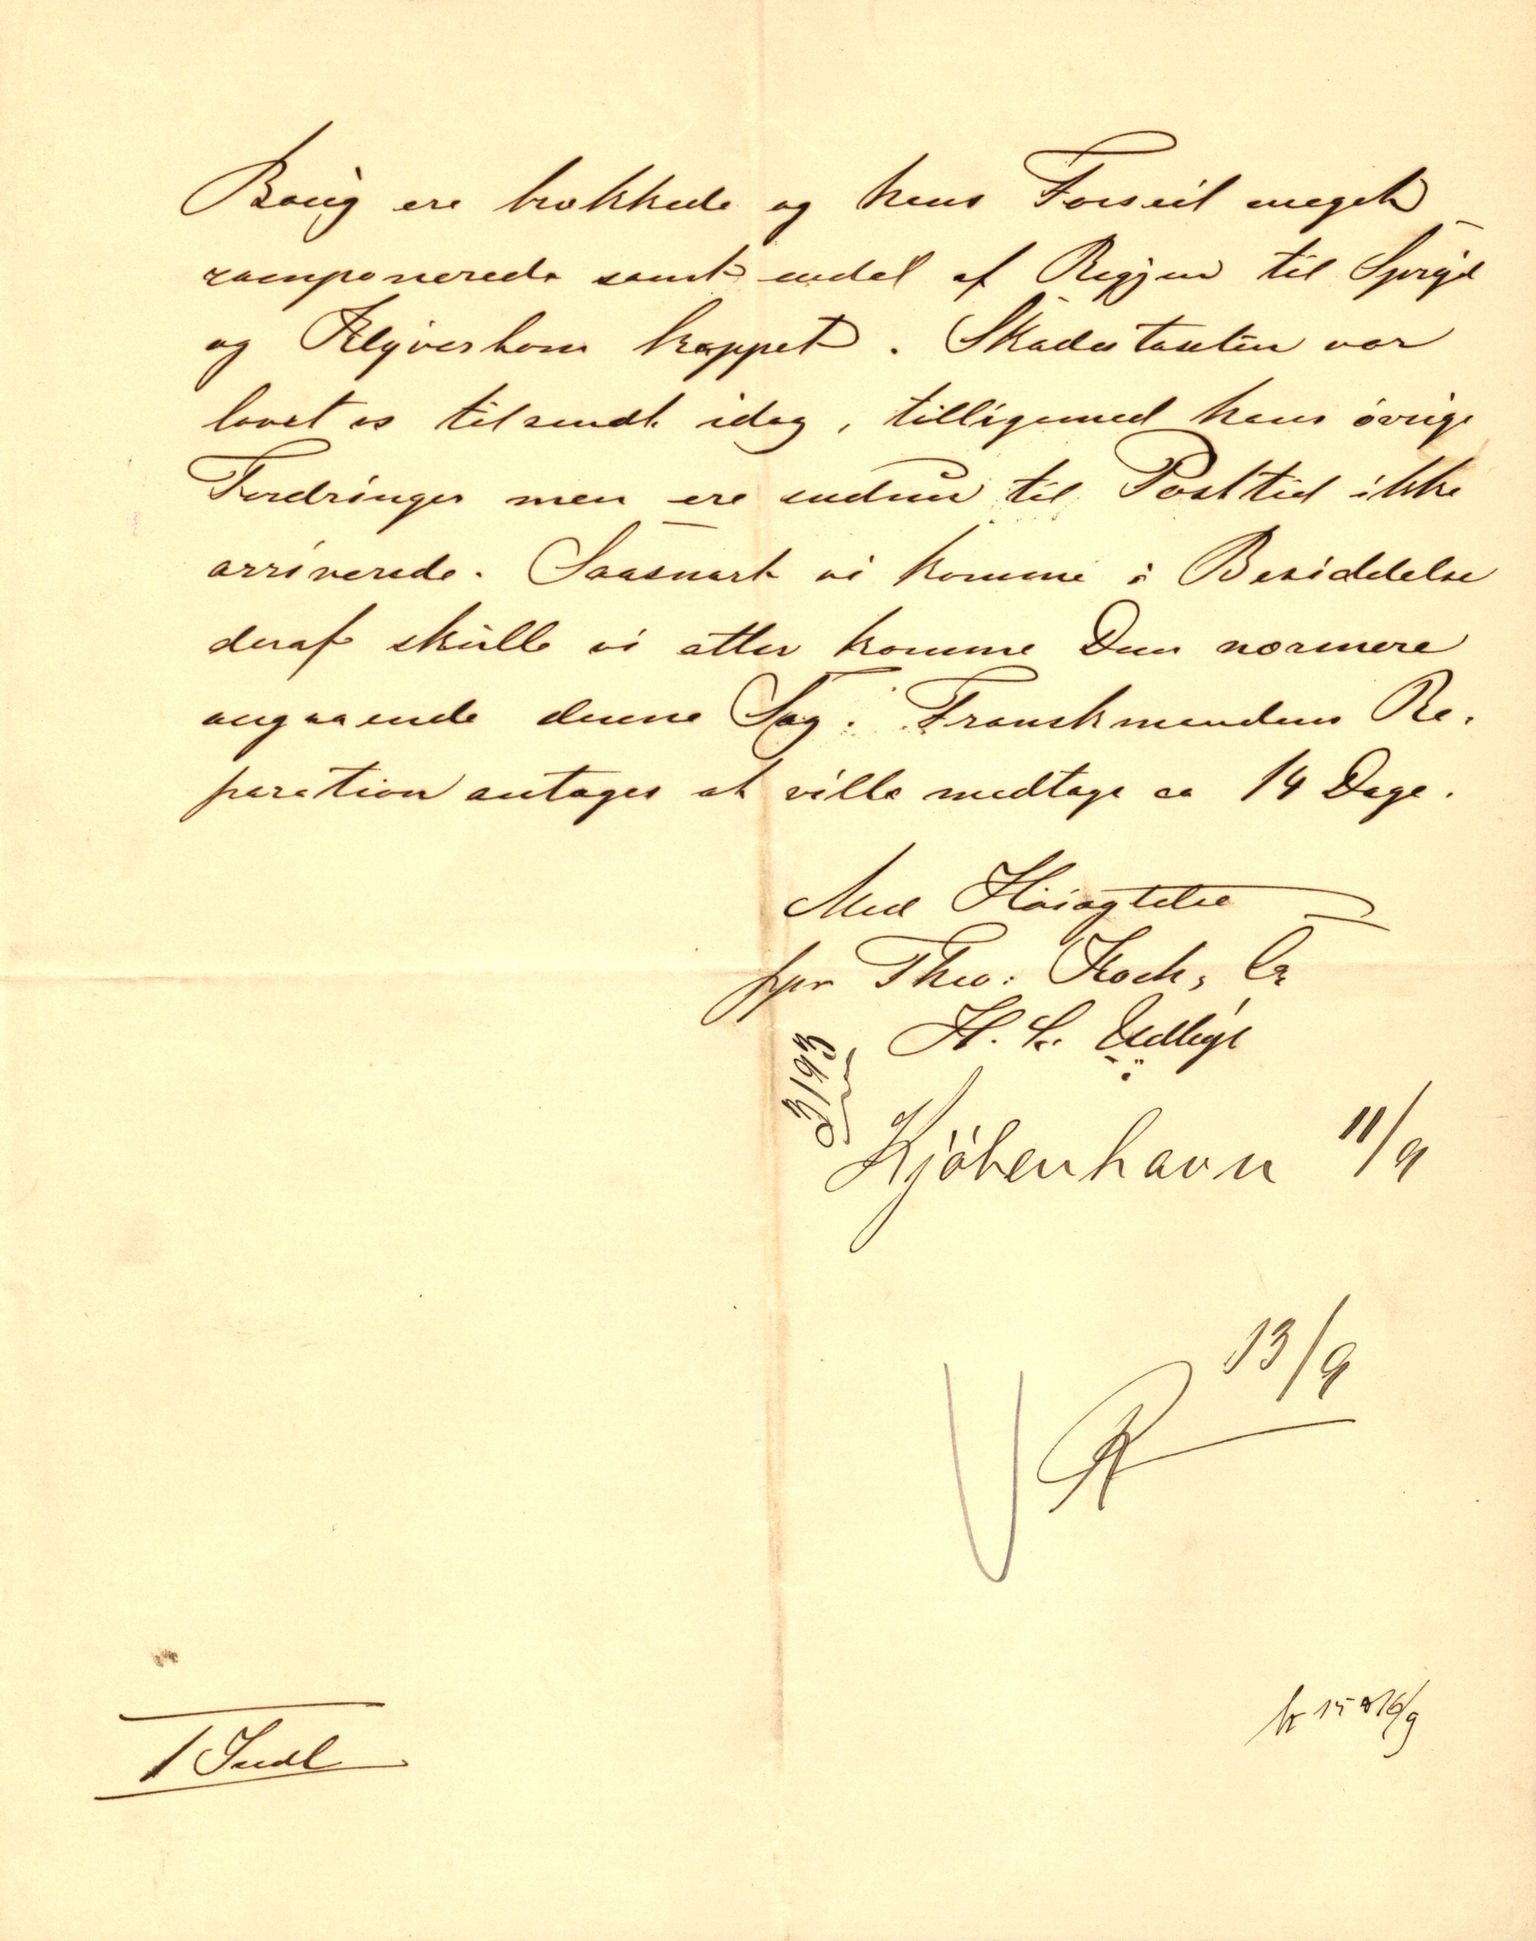 Boug ere brækkede og hans Forseil meget
ramponerede samt endel af Rigjen til Spryd
og Klyverbom kappet. Skadestaxten var
lovet os tilsendt idag, tilligemed hans øvrige
Fordringer men ere endnu til Posttid ikke
arriverede. Saasnart vi komme i Besiddelse
deraf skulle vi atter komme Dem nærmere
angaaende denne Sag. Franskmandens Re-
paration antages at ville medtage ca 14 Dage.
Med Høiagtelse
ppr Theo: Koch & Co
H. C.
3193
Kjøbenhavn 11/9
13/9
R
15 & 16/9
1 Indl